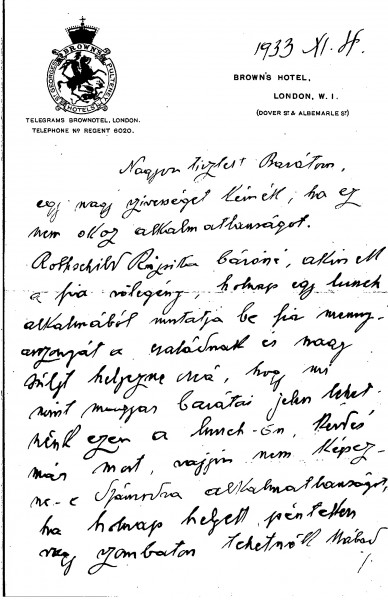 BROWN'S
ST GEORGE'S
PULTENEY
HOTELS
TELEGRAMS BROWNOTEL, LONDON.
TELEPHONE Nº REGENT 6020.
1933 XI. 4.
BROWN'S HOTEL,
LONDON, W. 1.
(DOVER ST & ALBEMARLE ST)
Nagyon tisztelt Barátom,
egy nagy szivességet kérnék, ha ez
nem okoz alkalmatlanságot.
Rothschild báróné, akinek
a fia vőlegény, holnap egy lunch
alkalmából mutatja be fia meny-
asszonyát a családnak és nagy
súlyt helyezne reá, hogy mi
mint magyar barátai jelen lehet-
nénk ezen a lunch-ön. Kérdés
már most, vajjon nem képez-
ne-e Számodra alkalmatlanságot,
ha holnap helyett pénteken
vagy szombaton tehetnők Nálad